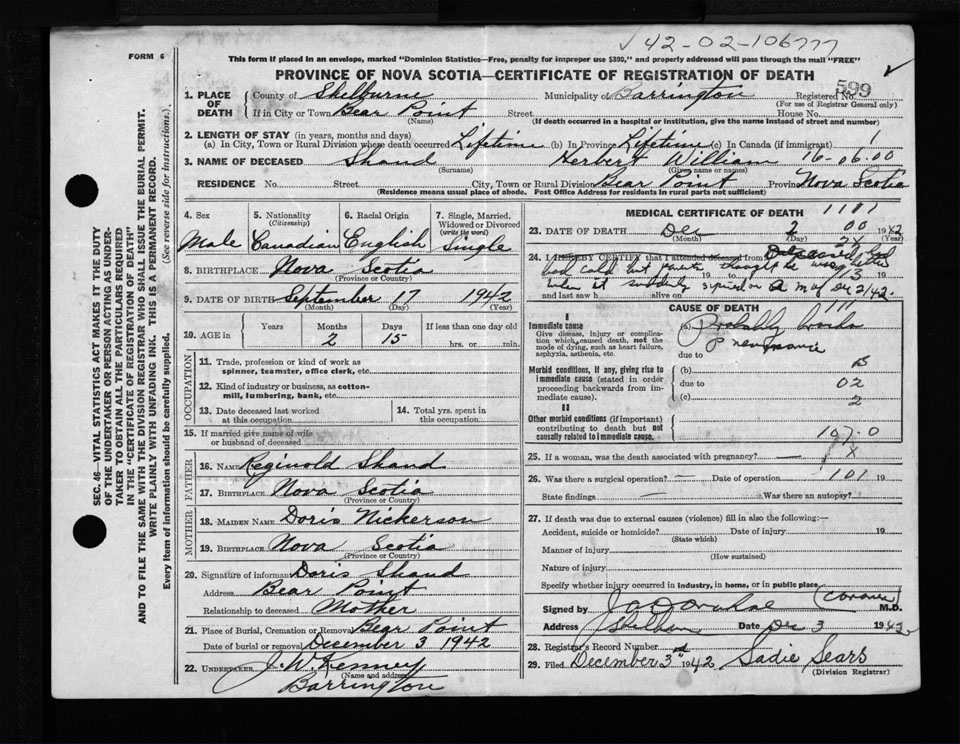 √ 42-02-106777
FORM 6
This form if placed in an envelope, marked "Dominion Statistics—Free, penalty for improper use $300," and properly addressed will pass through the mail "FREE"
PROVINCE OF NOVA SCOTIA—CERTIFICATE OF REGISTRATION OF DEATH
599
1. PLACE OF DEATH
County of Shelburne Municipality of Barrington Registered No.
(For use of Registrar General only)
If in City or Town Bear Point Street House No.
(Name) (If death occurred in a hospital or institution, give the name instead of street and number)
2. LENGTH OF STAY (in years, months and days)
(a) In City, Town or Rural Division where death occurred Lifetime (b) In Province Lifetime (c) In Canada (if immigrant) 1
3. NAME OF DECEASED Shand Herbert William 16-06:00
(Surname) (Given name or names)
RESIDENCE No. Street City, Town or Rural Division Bear Point Province Nova Scotia
(Residence means usual place of abode. Post Office Address for residents in rural parts not sufficient)
SEC. 46—VITAL STATISTICS ACT MAKES IT THE DUTY
OF THE UNDERTAKER OR PERSON ACTING AS UNDER-
TAKER TO OBTAIN ALL THE PARTICULARS REQUIRED
IN THE "CERTIFICATE OF REGISTRATION OF DEATH"
AND TO FILE THE SAME WITH THE DIVISION REGISTRAR WHO SHALL ISSUE THE BURIAL PERMIT.
WRITE PLAINLY WITH UNFADING INK. THIS IS A PERMANENT RECORD.
Every item of information should be carefully supplied. (See reverse side for instructions.)
4. Sex
Male
5. Nationality
(Citizenship)
Canadian
6. Racial Origin
English
7. Single, Married, Widowed or Divorced
(write the word)
Single
8. BIRTHPLACE Nova Scotia
(Province or Country)
9. DATE OF BIRTH September 17 1942
(Month) (Day) (Year)
10. AGE in Years Months Days If less than one day old
2 15 hrs. or min.
OCCUPATION
11. Trade, profession or kind of work as
spinner, teamster, office clerk, etc.
12. Kind of industry or business, as cotton-
mill, lumbering, bank, etc.
13. Date deceased last worked
at this occupation.
14. Total yrs. spent in
this occupation.
15. If married give name of wife
or husband of deceased
FATHER
16. NAME Reginold Shand
17. BIRTHPLACE Nova Scotia
(Province or Country)
MOTHER
18. MAIDEN NAME Doris Nickerson
19. BIRTHPLACE Nova Scotia
(Province or Country)
20. Signature of informant Doris Shand
Address Bear Point
Relationship to deceased Mother
21. Place of Burial, Cremation or Removal Bear Point
Date of burial or removal December 3 1942
22. UNDERTAKER J. W. Kenney
(Name and address)
Barrington
MEDICAL CERTIFICATE OF DEATH 1107
23. DATE OF DEATH Dec 2 00 1942
(Month) (Day) (Year)
24. I HEREBY CERTIFY that I attended deceased from
bad cold but parents thought he was better
19 to 19
when it suddenly expired on A M of Dec 2/42.
and last saw h alive on
CAUSE OF DEATH
I
Immediate cause
Give disease, injury or complication which caused death, not the mode of dying, such as heart failure, asphyxia, asthenia, etc.
(a) Probably broncho
pneumonia
due to
Morbid conditions, if any, giving rise to immediate cause (stated in order proceeding backwards from immediate cause).
(b)
due to 02
(c) 2
II
Other morbid conditions (if important) contributing to death but not causally related to immediate cause.
107.0
25. If a woman, was the death associated with pregnancy? — X
26. Was there a surgical operation? — Date of operation 101 19
State findings — Was there an autopsy?
27. If death was due to external causes (violence) fill in also the following:—
Accident, suicide or homicide? Date of injury 19
(State which)
Manner of injury
(How sustained)
Nature of injury
Specify whether injury occurred in industry, in home, or in public place
(Coroner)
Signed by M.D.
Address Date Dec 3 1942
28. Registrar's Record Number
29. Filed December 3rd 1942 Sadie Sears
(Division Registrar)